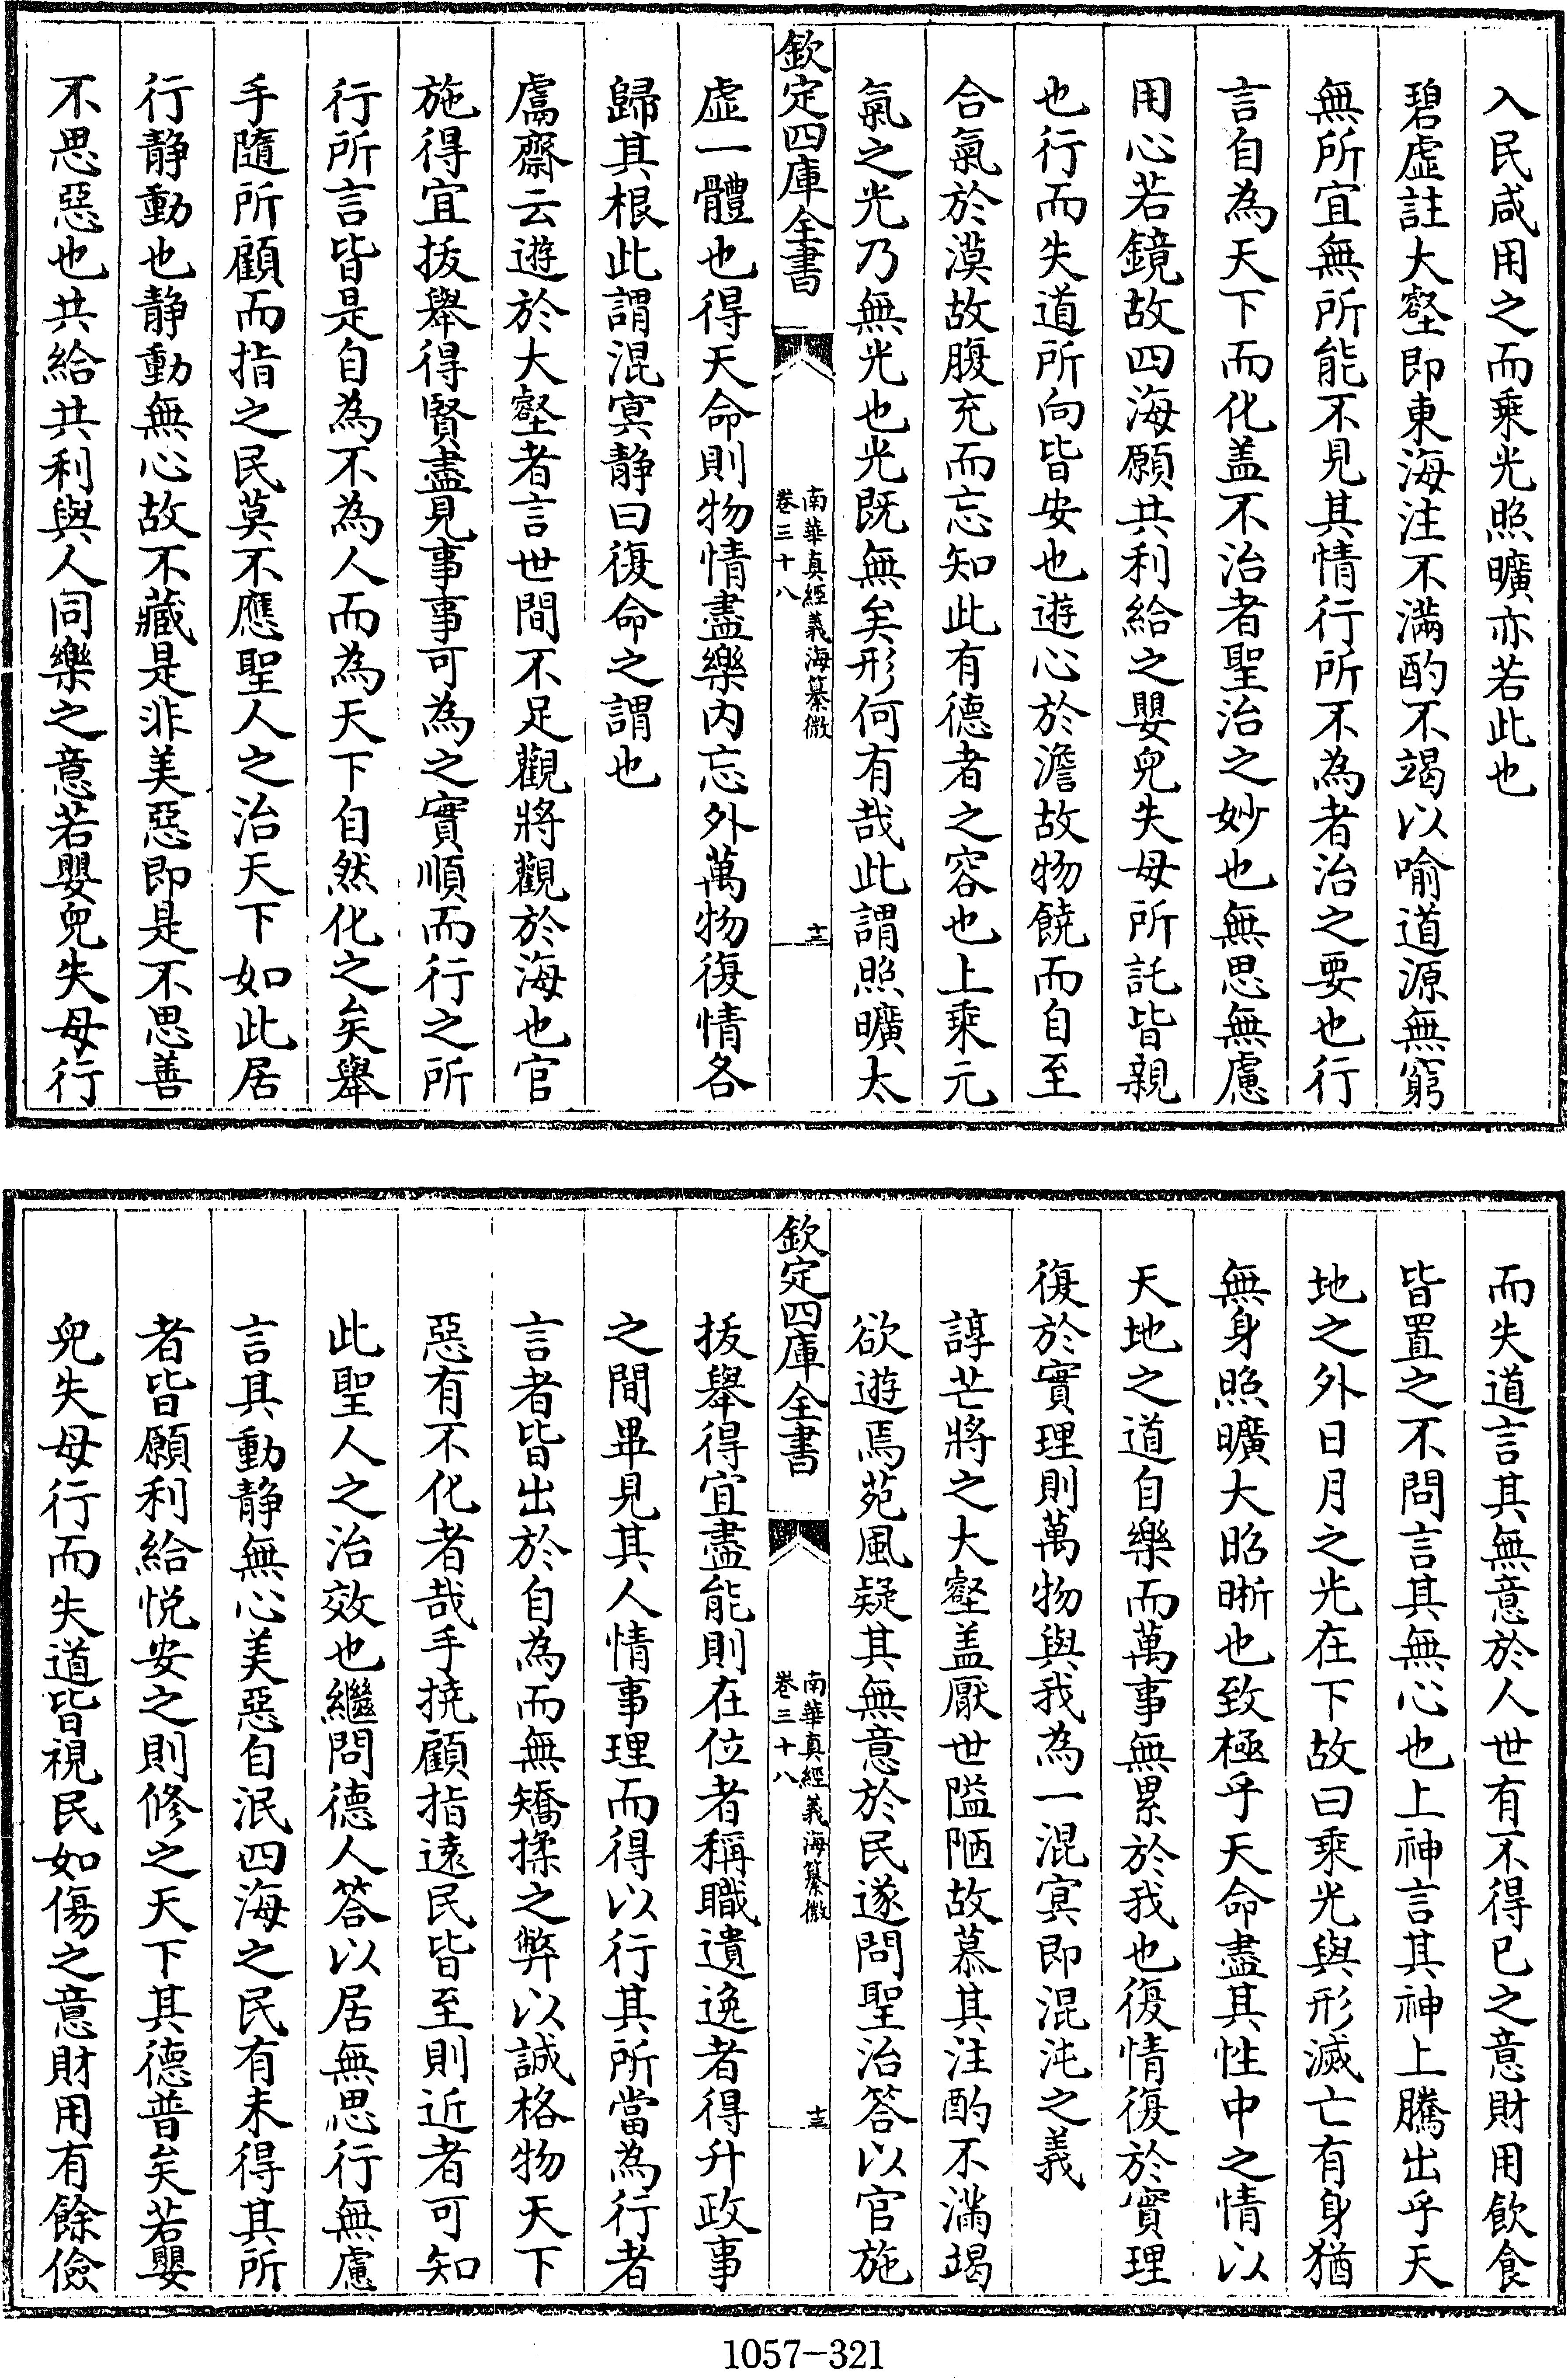 入民咸用之而乘光照曠亦若此也
碧虛註大壑即東海注不滿酌不竭以喻道源無窮
無所宜無所能不見其情行所不為者治之要也行
言自為天下而化盖不治者聖治之妙也無思無慮
用心若鏡故四海願共利給之嬰兒失母所託皆親
也行而失道所向皆安也遊心於澹故物饒而自至
合氣於漠故腹充而忘知此有德者之容也上乘元
氣之光乃無光也光既無矣形何有哉此謂照曠太
欽定四庫全書
南華真經義海纂微
卷三十八
十三
虛一體也得天命則物情盡樂内忘外萬物復情各
歸其根此謂混冥静曰復命之謂也
鬳齋云遊於大壑者言世間不足觀將觀於海也官
施得宜拔舉得賢盡見事事可為之實順而行之所
行所言皆是自為不為人而為天下自然化之矣舉
手隨所顧而指之民莫不應聖人之治天下如此居
行静動也静動無心故不藏是非美惡即是不思善
不思惡也共給共利與人同樂之意若嬰兒失母行
而失道言其無意於人世有不得已之意財用飲食
皆置之不問言其無心也上神言其神上騰出乎天
地之外日月之光在下故曰乘光與形滅亡有身猶
無身照曠大昭晣也致極乎天命盡其性中之情以
天地之道自樂而萬事無累於我也復情復於實理
復於實理則萬物與我為一混冥即混沌之義
諄芒將之大壑盖厭世隘陋故慕其注酌不滿竭
欲遊焉苑風疑其無意於民遂問聖治答以官施
欽定四庫全書
南華真經義海纂微
卷三十八
十三
拔舉得宜盡能則在位者稱職遺逸者得升政事
之間畢見其人情事理而得以行其所當為行者
言者皆出於自為而無矯揉之弊以誠格物天下
惡有不化者哉手撓顧指遠民皆至則近者可知
此聖人之治效也繼問德人答以居無思行無慮
言其動静無心美惡自泯四海之民有未得其所
者皆願利給悦安之則修之天下其德普矣若嬰
兒失母行而失道皆視民如傷之意財用有餘儉
1057-321